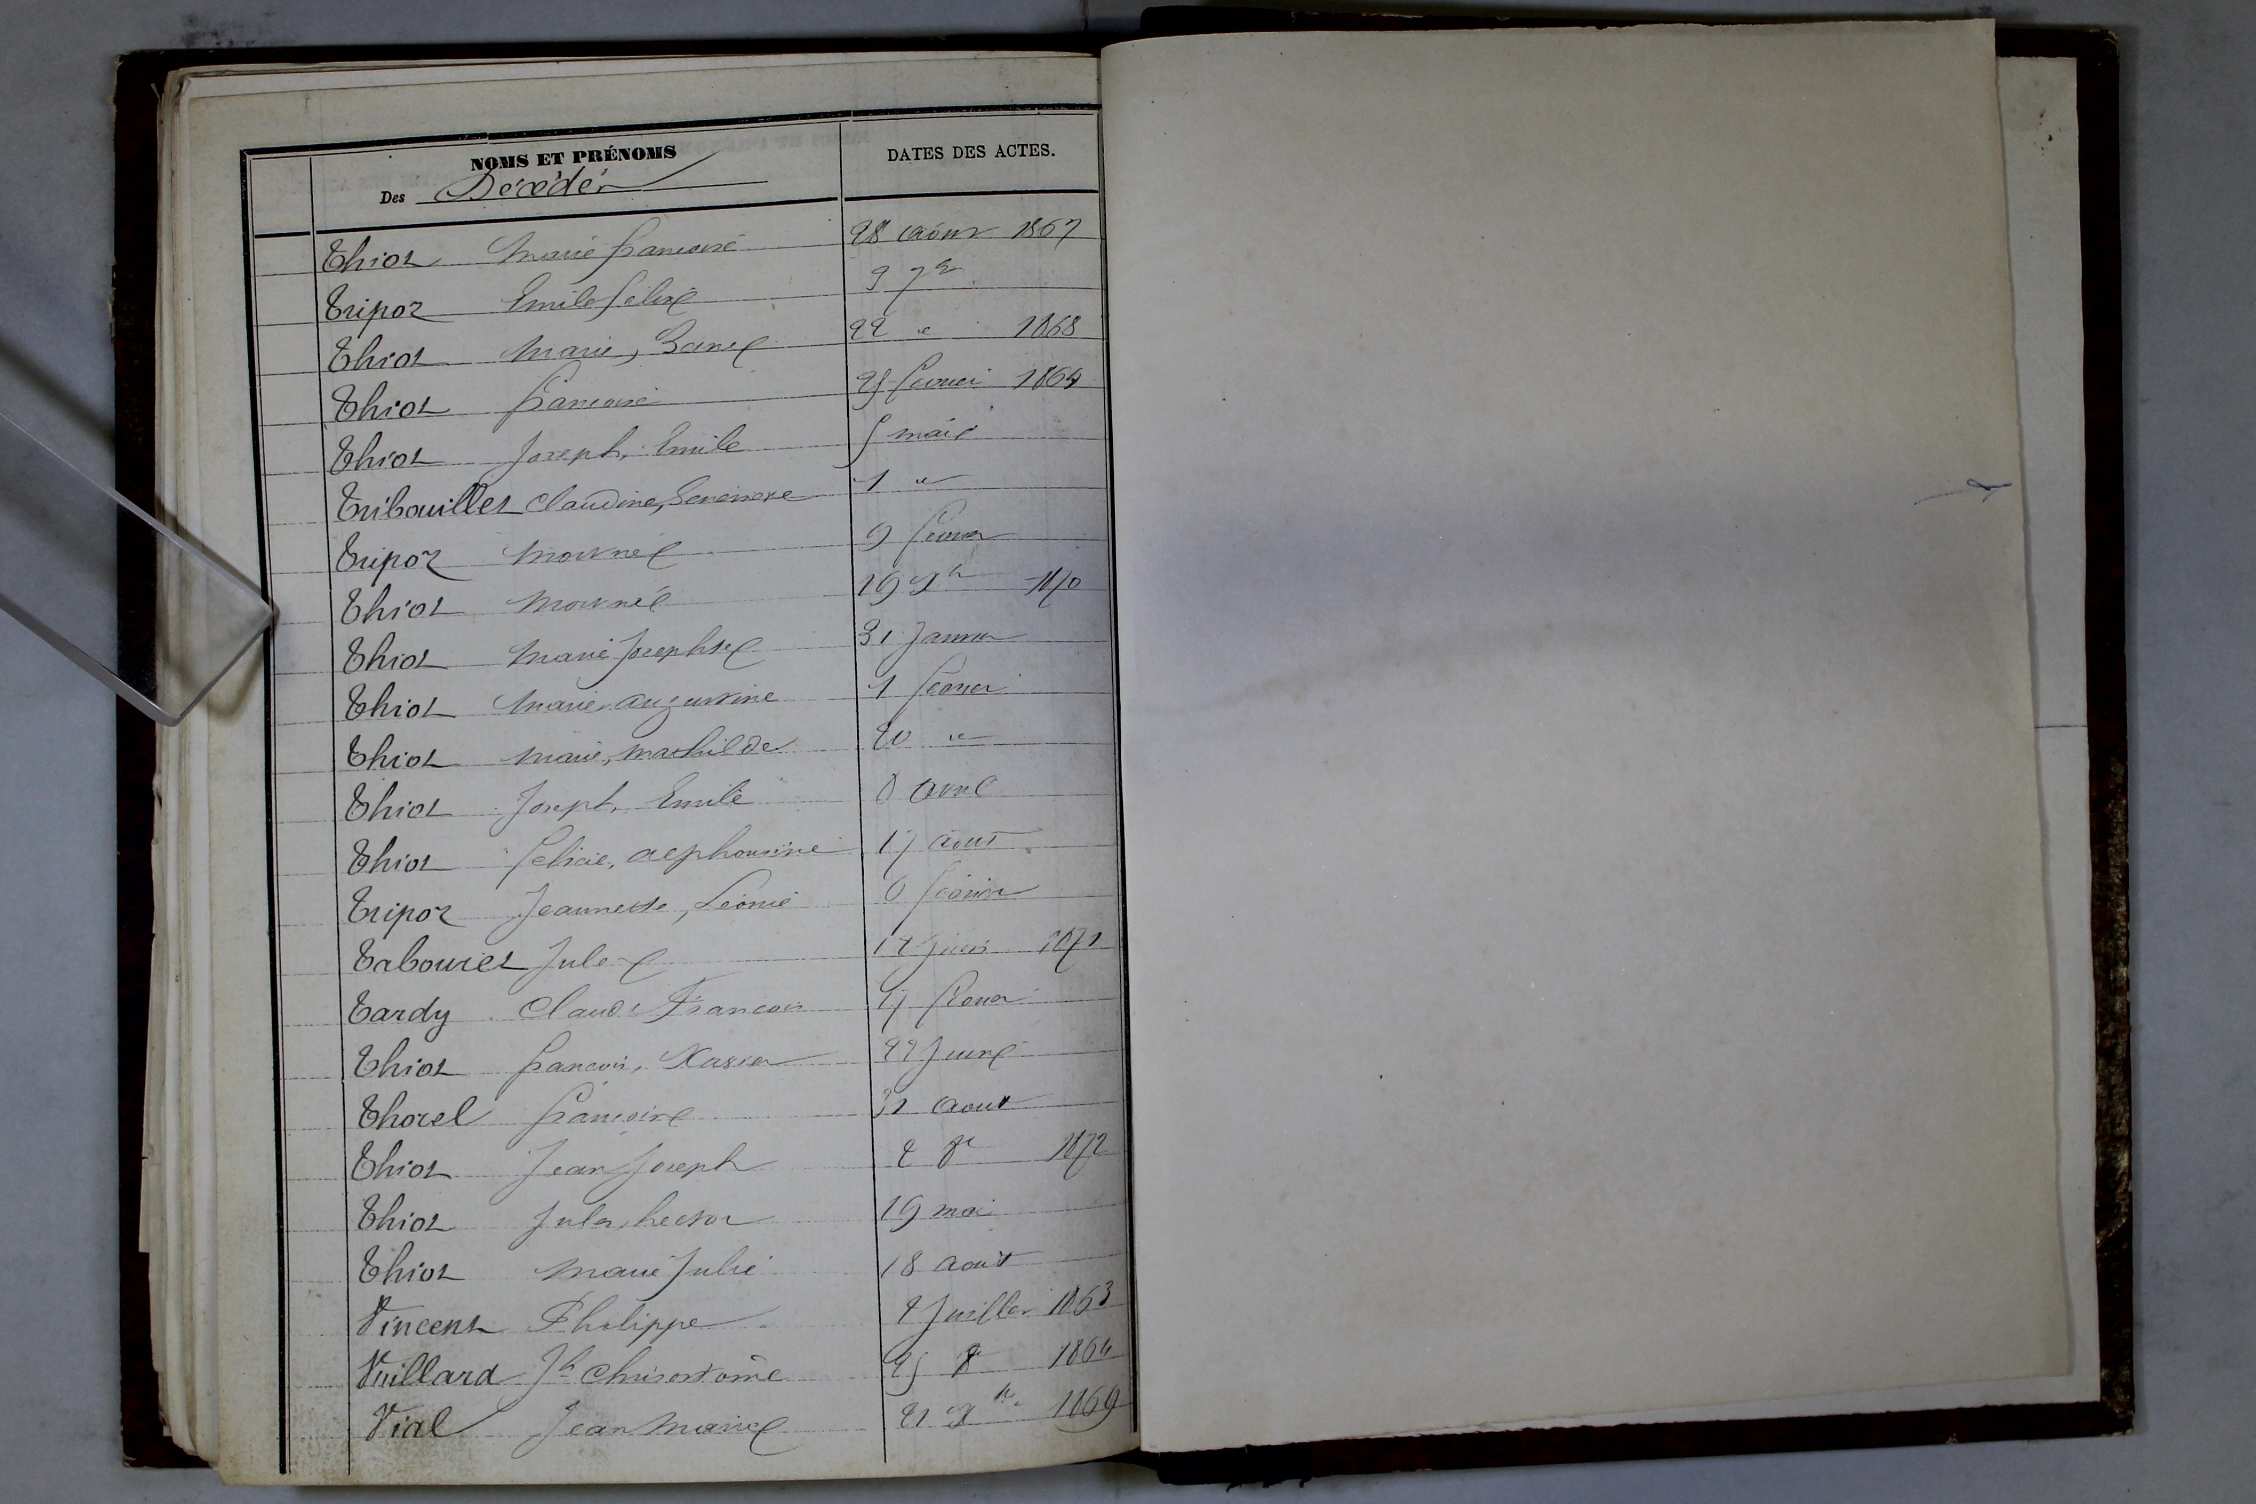 NOMS ET PRÉNOMS DATES DES ACTES.
Des Décédés
Thiot Marie françoise 28 août 1867
Tripoz Emile félix 9 7bre
Thiot Marie, 22 " 1868
Thiot françoise 25 fevrier 1869
Thiot Joseph, Emile 5 mars
Tribouillet Claudine, 1 "
Tripoz mort né 9 fevrier
Thiot mort né 19 1870
Thiot Marie Josephte 31 Janvier
Thiot Marie augustine 1 fevrier
Thiot Marie, Mathilde 20 "
Thiot Joseph, Emile 8 avril
Thiot félicie, alphonsine 17 août
Tripoz Jeannette, Léonie 6 février
Tabouret Jules 12 1871
Tardy Claude François 17 fevrier
Thiot françois, Xavier 22 Juin
Thorel françoise 31 aout
Thiot Jean Joseph 2 1872
Thiot Jules, hector 19 mai
Thiot Marie Julie 18 aout
Vincent Philippe 2 Juillet 1863
Vuillard Jh Chrisostome 25 1864
Vial Jean Marie 21 1869